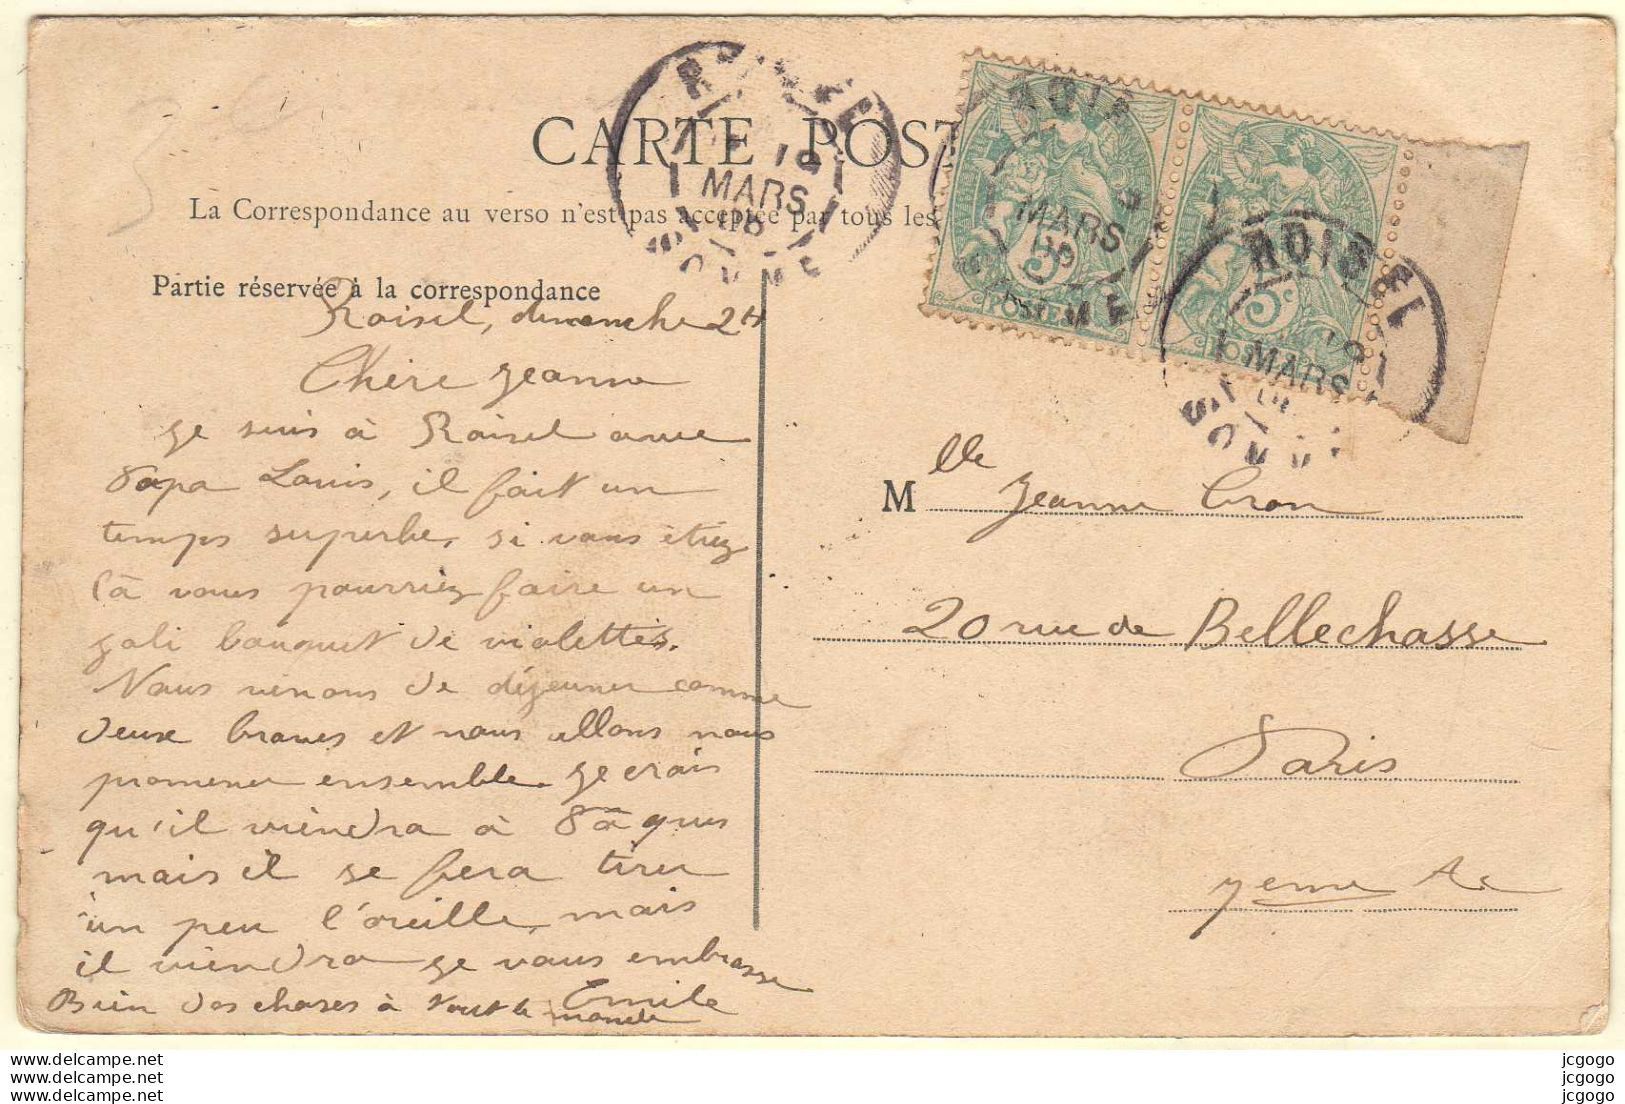 CARTE POST
La Correspondance au verso n'est pas acceptée par tous les
Partie réservée à la correspondance
Roisel, dimanche 2h
Chère Jeanne
Je suis à Roisel avec
Papa Louis, il fait un
temps superbe, si vous étiez
là vous pourriez faire un
joli bouquet de violettes.
Nous venons de déjeuner comme
deux braves et nous allons nous
promener ensemble. Je crois
qu'il viendra à Pâques
mais il se fera tirer
un peu l'oreille, mais
il viendra je vous embrasse
Emile
Bien des choses à tout le monde
ROISEL
MARS
08
SOMME
ROISEL
MARS
08
SOMME
5c
POSTES
5c
POSTES
ROISEL
MARS
SOMME
Mlle Jeanne Cron
20 rue de Bellechasse
Paris
7eme Ar
www.delcampe.net
www.delcampe.net
www.delcampe.net
jcgogo
jcgogo
jcgogo